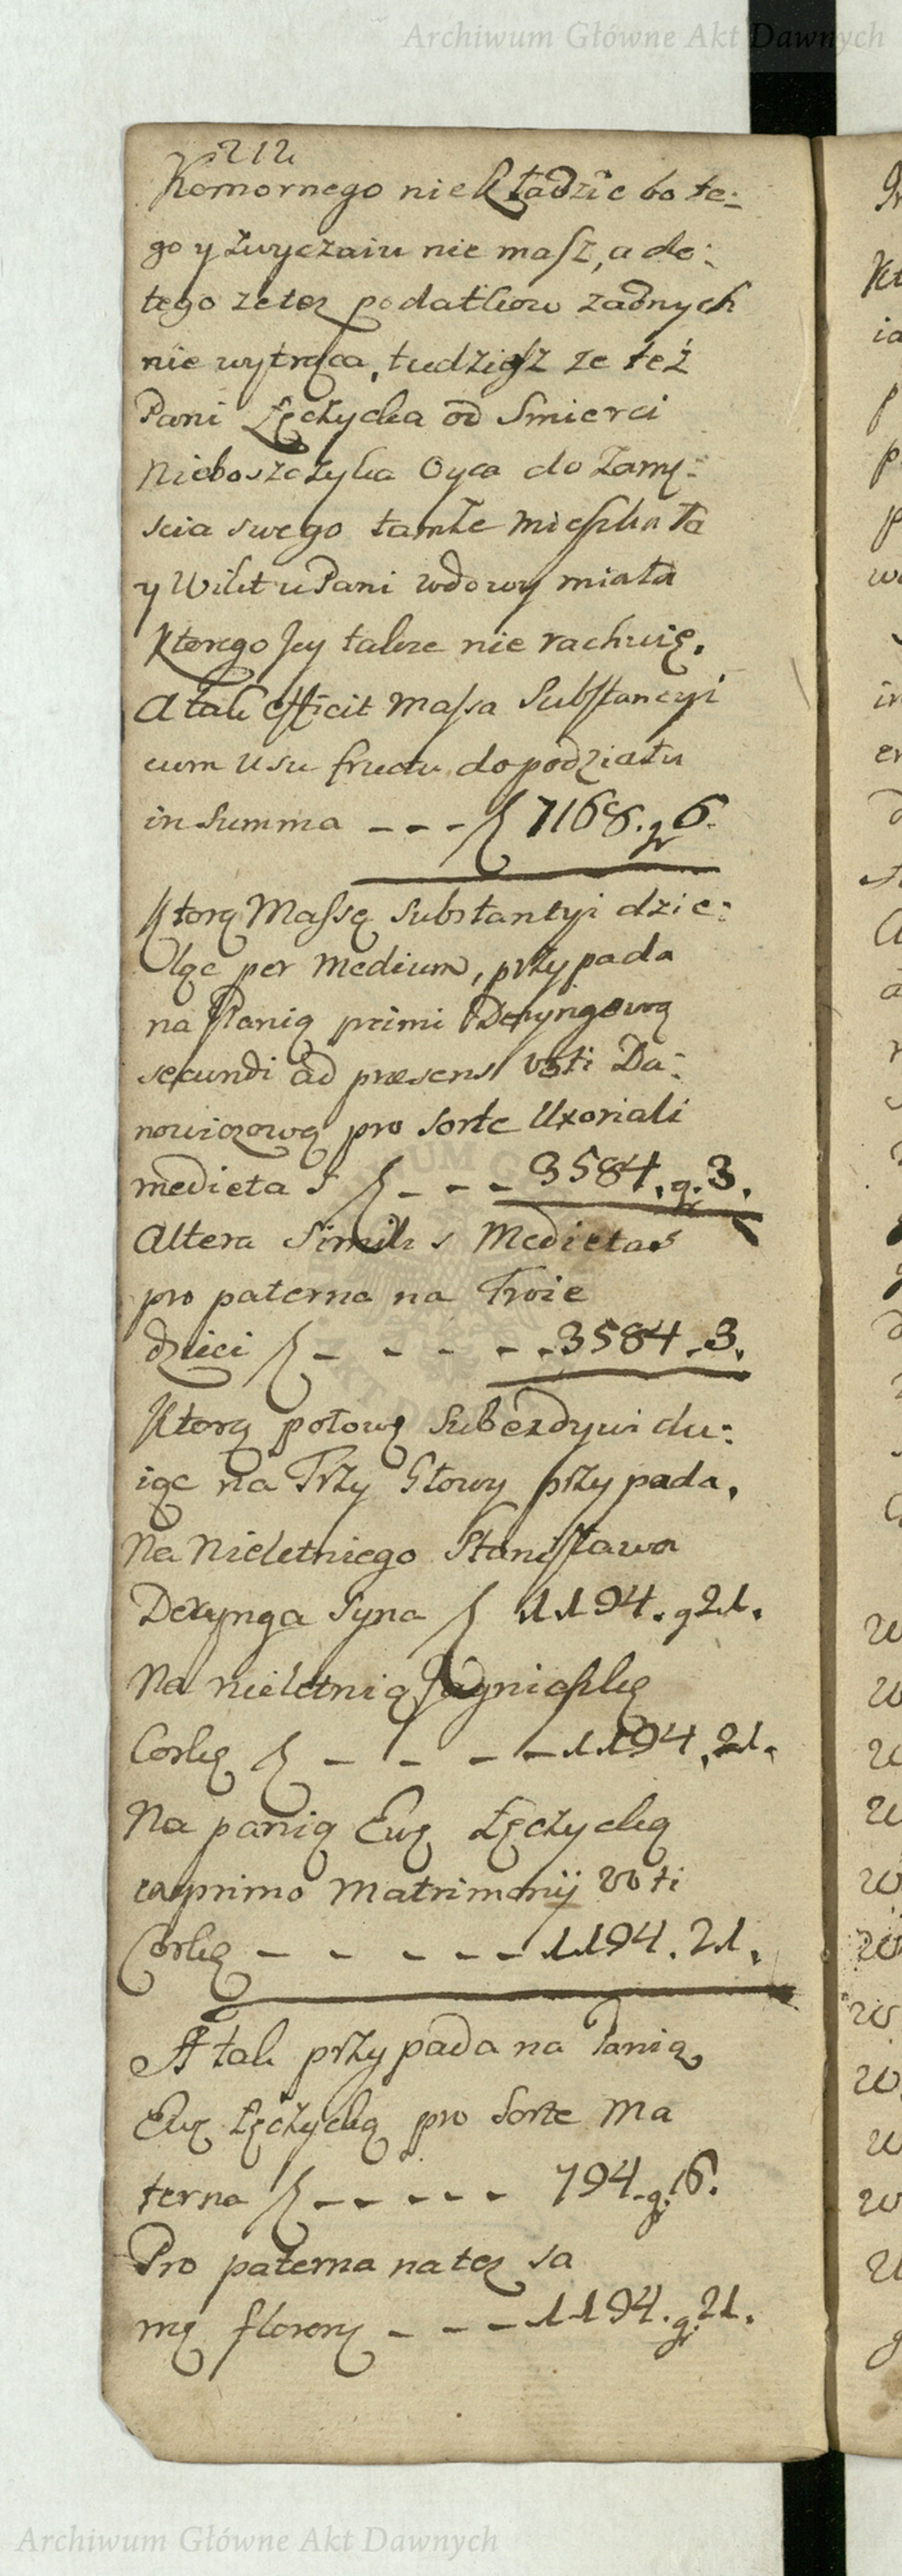 Archiwum Główne Akt Dawnych
212
Komornego nie kładzie bo te-
go y zwyczaiu nie masz, a do-
tego ze tez podatkow zadnych
nie wytrąca, tudziesz ze też
Pani Łęczycka od Smierci
Nieboszczyka Oyca do zamę-
scia swego tamże mieszkała
y Wikt u Pani wdowy miała
Ktorego Jey takze nie rachuię.
A tak efficit Massa Substancyi
cum usu fructu do podziału
in Summa - - - 7168. gr 6.
Ktorą Massę Substantyi dzie-
ląc per medium, przypada
na Panią primi Deryngową
secundi ad præsens voti Da-
nowiczową pro sorte Uxoriali
medietas - - - 3584. gr. 3.
Altera Similis Medietas
pro paterna na Troie
dzieci - - - - - 3584. 3.
Ktorą połowę Subexdywidu-
iąc na Trzy Głowy przypada.
Na Nieletniego Stanisława
Derynga Syna 1194. g 21.
Na nieletnią
Corkę - - - - 1194. 21.
Na panią Ewę Łęczycką
primo Matrimonij Voti
Corkę - - - - - 1194. 21.
A tak przypada na Panią
Ewę Łęczycką pro Sorte Ma
terna - - - - - 794. g. 16.
Pro paterna na tez sa
mę floreny - - - 1194. gr. 21.
Archiwum Główne Akt Dawnych